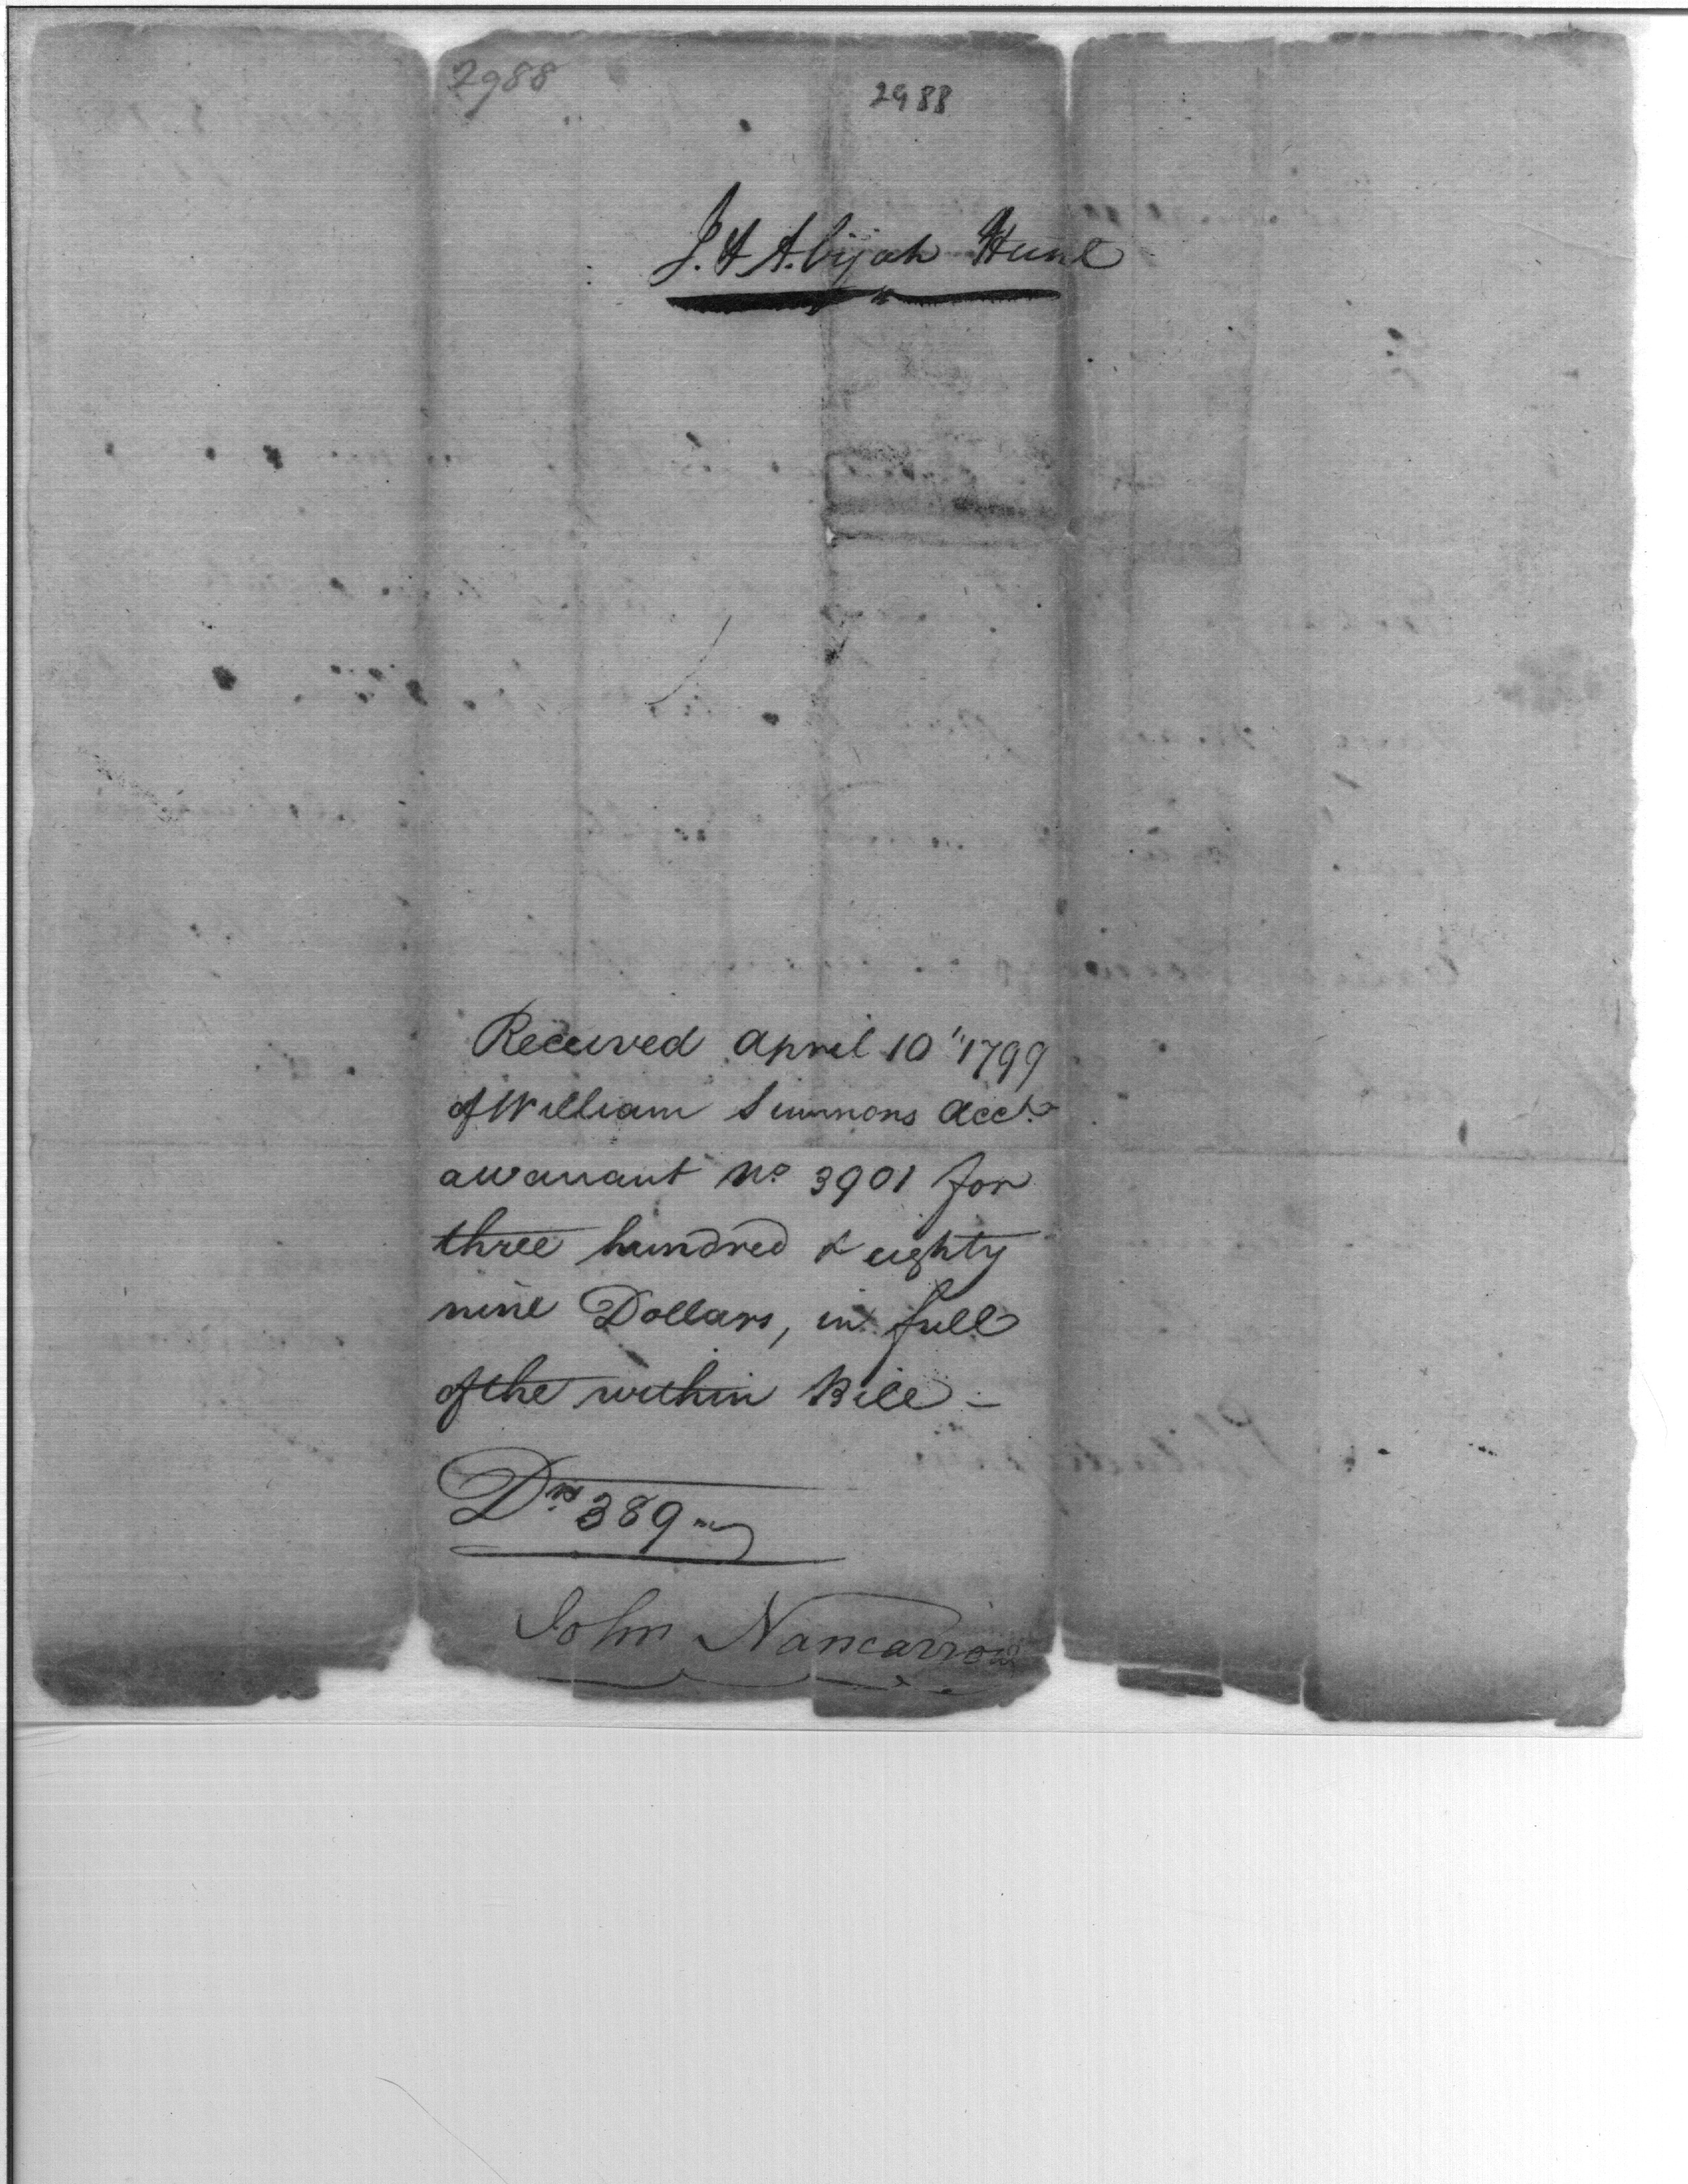 2988
2988
J. & Abijah Hunt
Received April 10" 1799
of William Simmons Acct.
a warrant No 3901 for
three hundred & eighty
nine Dollars, in full
of the within Bill –
Drs 389
John Nancarrow